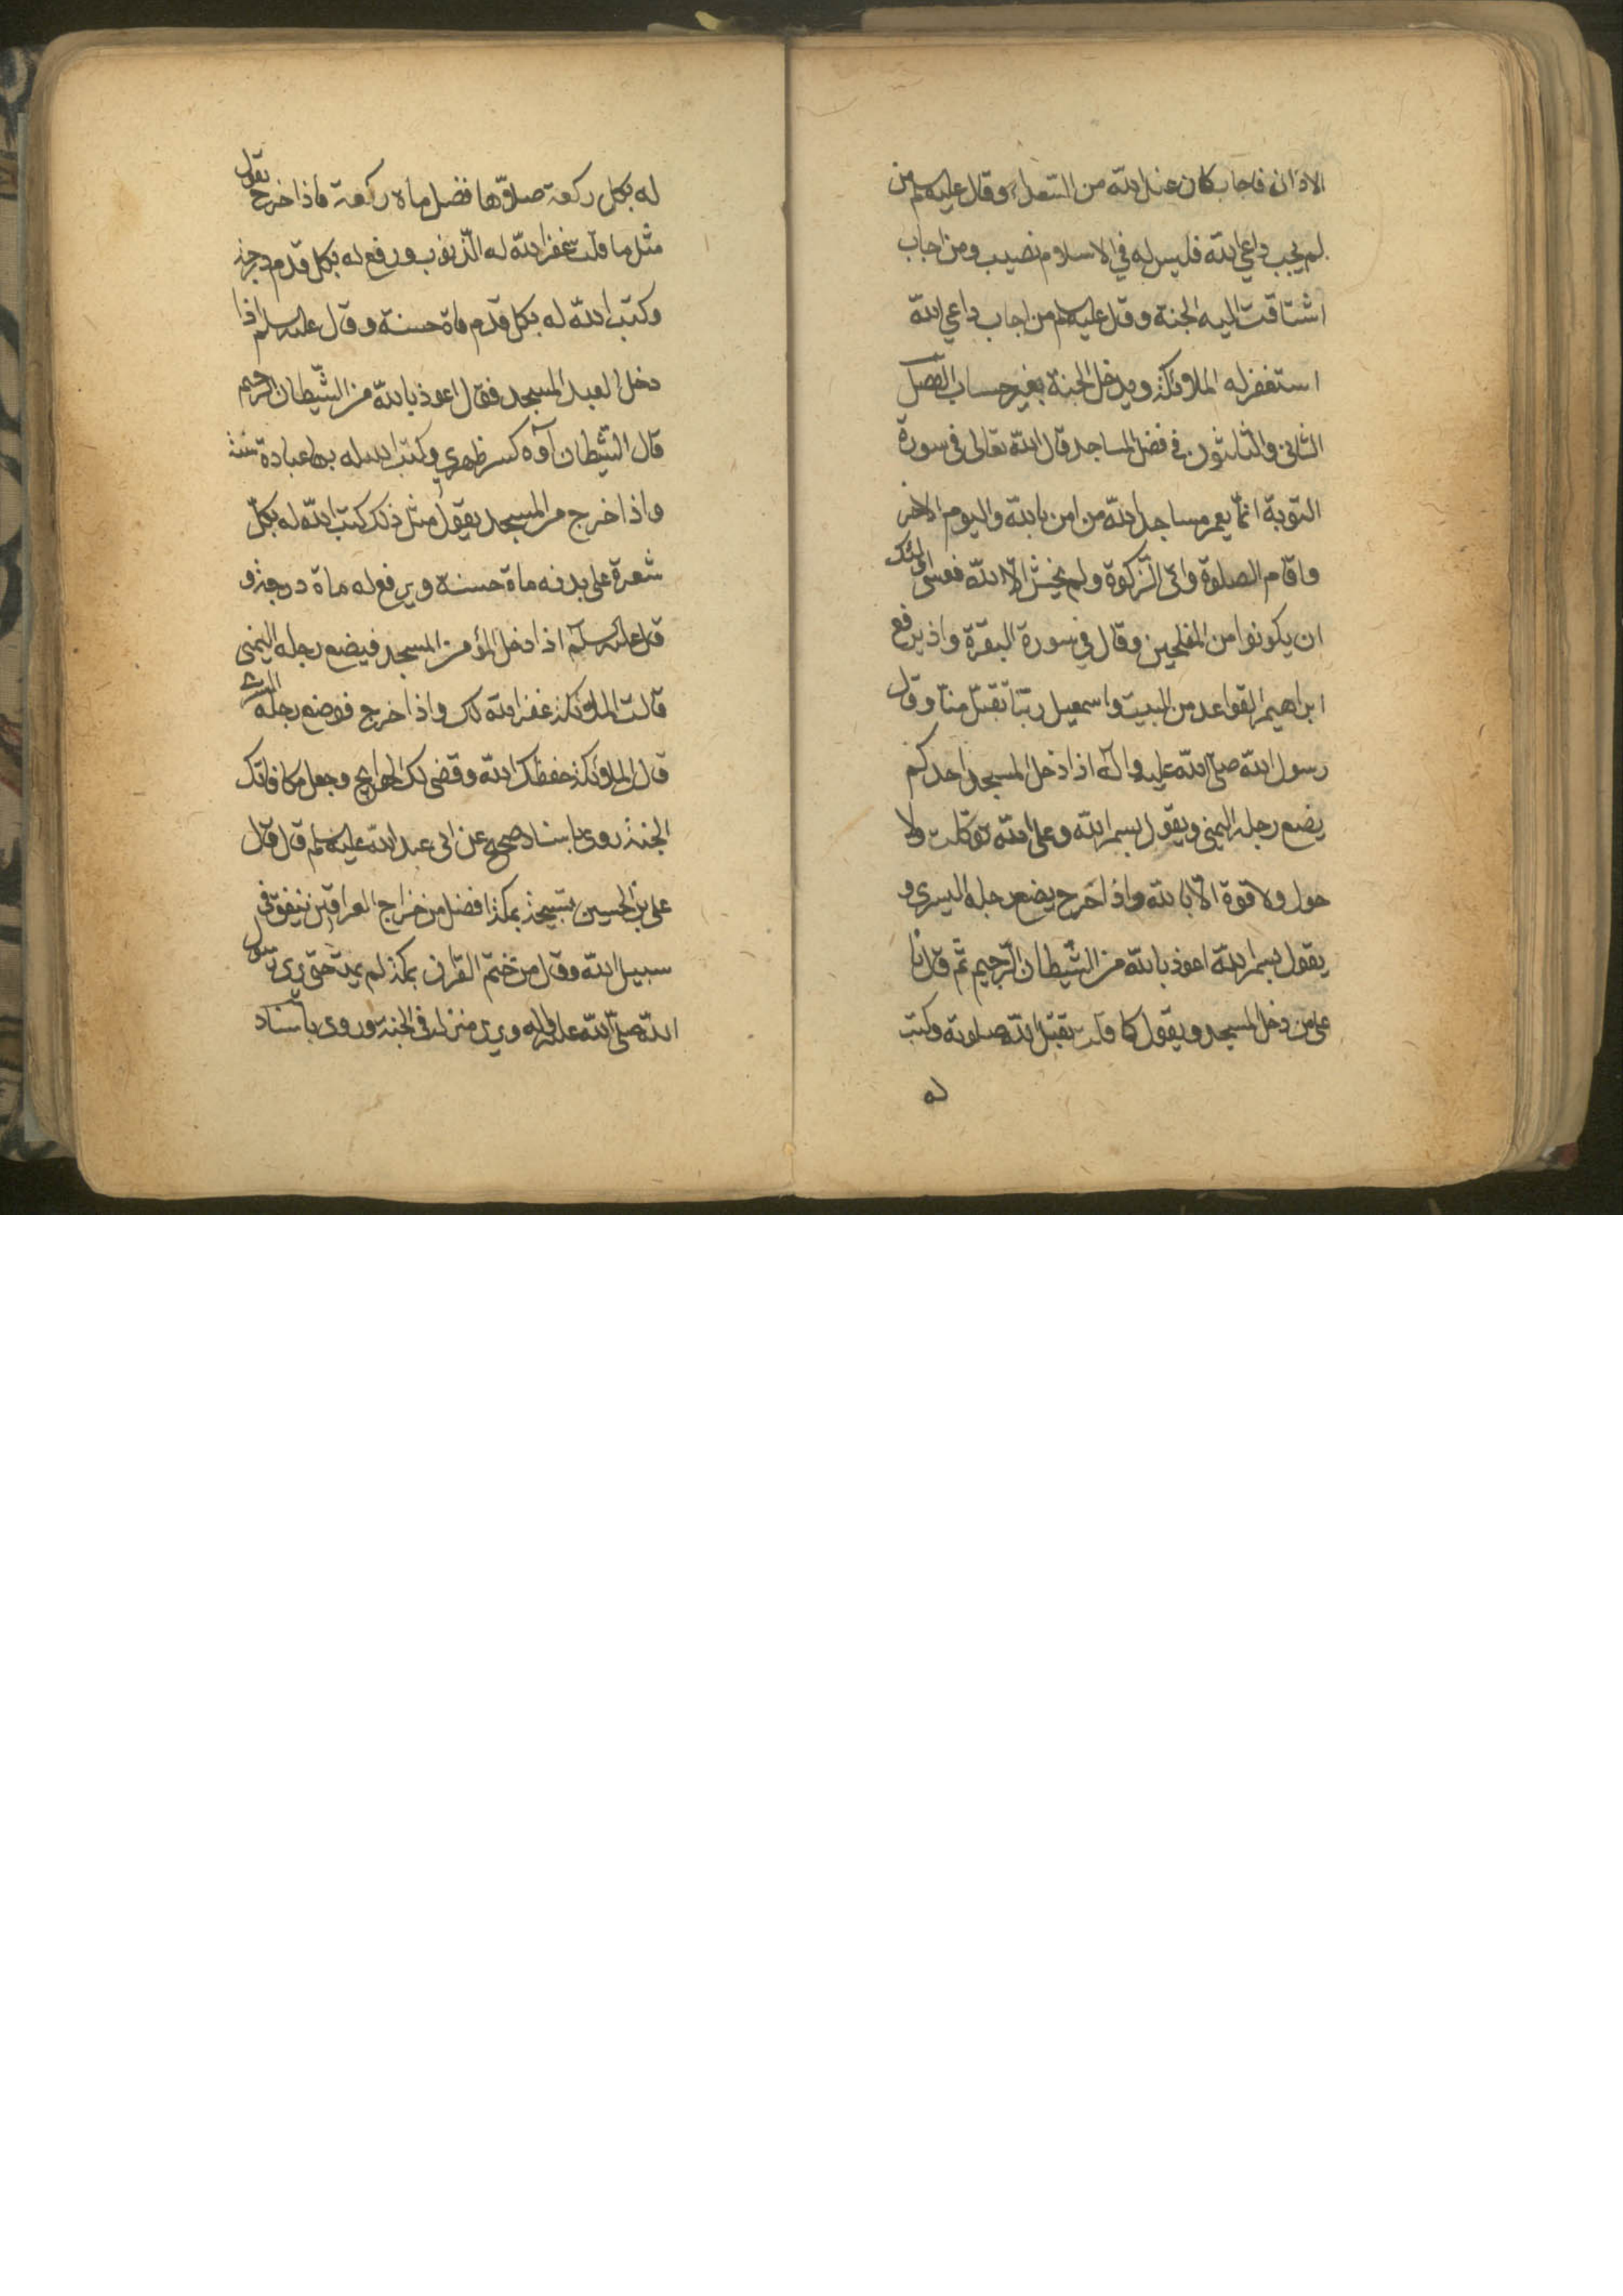 الاذان فاجاب كان عند الله من السعداء وقال عليه سلم من
لم يجب داعي الله فليس له في الاسلام نصيب ومن اجاب
اشتاقت اليه الجنة وقال عليه سلم من اجاب داعي الله
استغفر له الملائكة ويدخل الجنة بغير حساب الفصل
الثاني والثلثون في فضل المساجد قال الله تعالى في سورة
التوبة انما يعمر مساجد الله من امن بالله واليوم الاخر
واقام الصلوة واتى الزكوة ولم يخش الا الله فعسى اولئك
ان يكونوا من المفلحين وقال في سورة البقرة واذ يرفع
ابراهيم القواعد من البيت واسمعيل ربنا تقبل منا وقال
رسول الله صلى الله عليه واله اذا دخل المسجد احدكم
يضع رجله اليمنى ويقول بسم الله وعلى الله توكلت ولا
حول ولا قوة الا بالله واذا اخرج يضع رجله اليسرى و
يقول بسم الله اعوذ بالله من الشيطان الرجيم ثم قال يا
على من دخل المسجد ويقول كما قلت تقبل الله صلوته وكتب
له
له بكل ركعة صلاها فضل ماة ركعة فاذا خرج يقول
مثل ما قلت غفر الله له الذنوب ورفع له بكل قدم درجة
وكتب الله له بكل قدم ماة حسنة وقال عليه سلم اذا
دخل العبد المسجد فقال اعوذ بالله من الشيطان الرجيم
قال الشيطان آوه كسر ظهري وكتب الله له بها عبادة سنة
واذا خرج من المسجد يقول مثل ذلك كتب الله له بكل
شعرة على بدنه ماة حسنة ويرفع له ماة درجة و
قال عليه سلم اذا دخل المؤمن المسجد فيضع رجله اليمنى
قالت الملائكة غفر الله لك واذا خرج فوضع رجله اليسرى
قال الملائكة حفظك الله وقضى لك الحوايج وجعل مكافاتك
الجنة روى باسناد صحيح عن ابى عبد الله عليه سلم قال قال
على بن الحسين تسبيحة بمكة افضل من خراج العراقين ينفق في
سبيل الله وقال من ختم القران بمكة لم يمت حتى يرى رسول
الله صلى الله عليه واله ويرى منزله في الجنة وروى باسناد